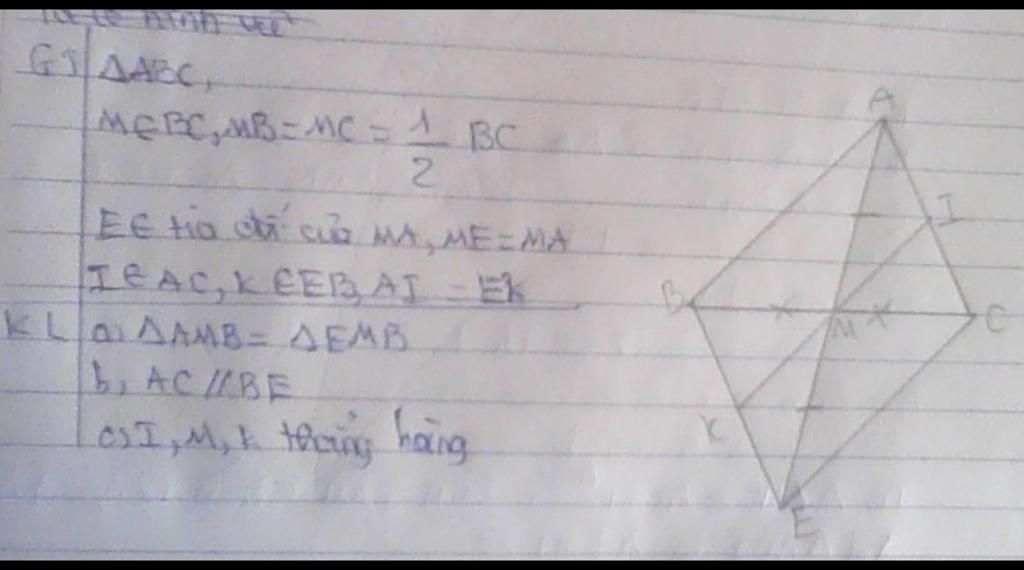 GT ΔABC,
M∈BC, MB=MC = 1/2 BC
E∈ tia đối của MA, ME=MA
I∈AC, K∈EB, AI = EK
KL a, ΔAMB = ΔEMB
b, AC//BE
c, I, M, K thẳng hàng
A
I
B
M
C
K
E